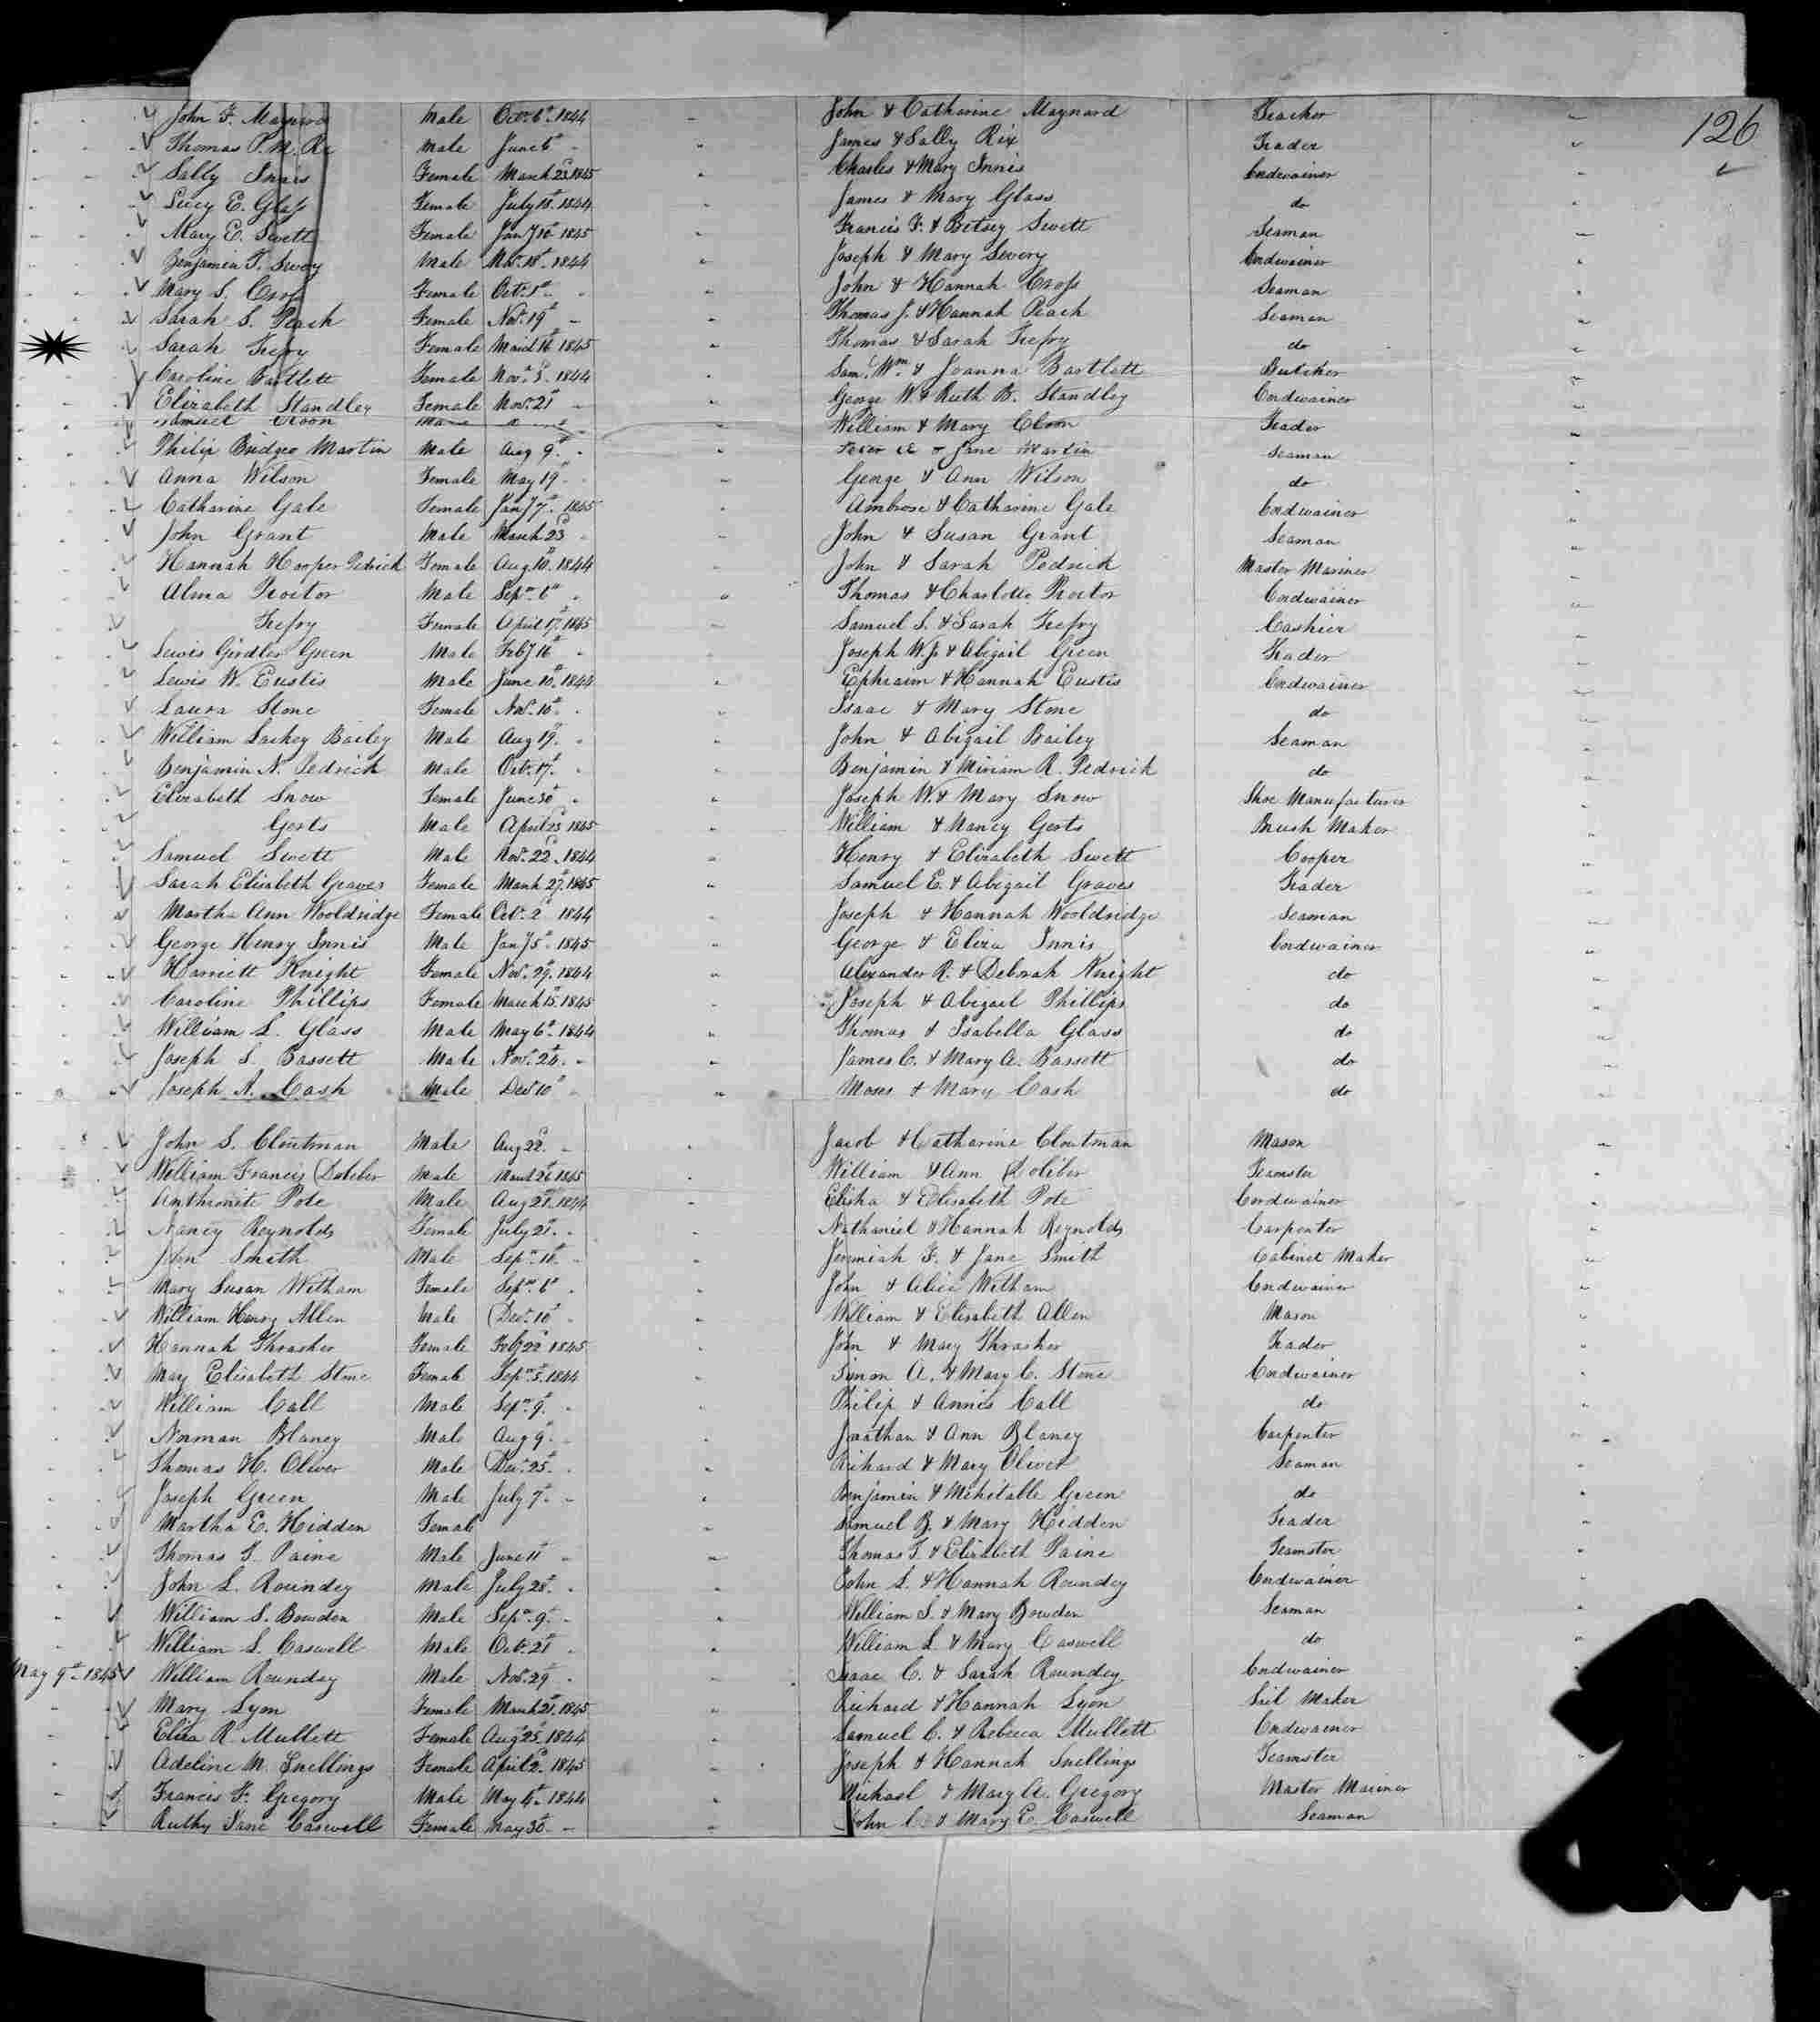 126
John F. Maynard Male Octr. 6th 1844 " John & Catharine Maynard Teacher "
Thomas P. M. Male June 6th " " James & Sally Rix Trader "
Sally Innis Female March 23d 1845 " Charles & Mary Innis Cordwainer "
Lucy E. Glass Female July 18th 1844 " James & Mary Glass do "
Mary E. Swett Female Jany 1845 " Francis F. & Betsey Swett Seaman "
Benjamin T. Male Novr. 18th 1844 " Joseph & Mary Severy Cordwainer "
Mary S. Cross Female Octr. 1st " " John & Hannah Cross Seaman "
Sarah S. Peach Female Novr. 19th " " Thomas J. & Hannah Peach Seaman "
Sarah Trefry Female 16th 1845 " Thomas & Sarah Trefry do "
Caroline Bartlett Female Novr. 3d 1844 " Saml. Wm. & Joanna Bartlett Butcher "
Elizabeth Standley Female Novr. 21st " " George W. & Ruth B. Standley Cordwainer "
Samuel Cloon Male " William & Mary Cloon Trader "
Philip Bridgeo Martin Male Aug 9th " " & Jane Martin Seaman "
Anna Wilson Female May 19th " " George & Ann Wilson do "
Catharine Gale Female Jany 7th 1845 " Ambrose & Catharine Gale Cordwainer "
John Grant Male March 23d " " John & Susan Grant Seaman "
Hannah Hooper Pedrick Female Aug. 10th 1844 " John & Sarah Pedrick Master Mariner "
Proctor Male Sepr. 6th " " Thomas & Charlotte Proctor Cordwainer "
Trefry Female April 17th 1845 " Samuel S. & Sarah Trefry Cashier "
Lewis Girdler Green Male Feby 16th " " Joseph W. Jr. & Abigail Green Trader "
Lewis W. Eustis Male June 10th 1844 " Ephraim & Hannah Eustis Cordwainer "
Laura Stone Female Novr. 10th " " Isaac & Mary Stone do "
William Lackey Bailey Male Aug 19th " " John & Abigail Bailey Seaman "
Benjamin N. Pedrick Male Octr. 17th " " Benjamin & Miriam R. Pedrick do "
Elizabeth Snow Female June 30th " " Joseph W. & Mary Snow Shoe Manufacturer "
Gerts Male April 23d 1845 " William & Nancy Gerts Brush Maker "
Samuel Swett Male Novr. 22d 1844 " Henry & Elizabeth Swett Cooper "
Sarah Elizabeth Graves Female March 27th 1845 " Samuel E. & Abigail Graves Trader "
Martha Ann Wooldridge Female Octr. 2d 1844 " Joseph & Hannah Wooldridge Seaman "
George Henry Innis Male Jany 5th 1845 " George & Eliza Innis Cordwainer "
Harriett Knight Female Novr. 29th 1844 " Alexander R. & Deborah Knight do "
Caroline Phillips Female March 15th 1845 " Joseph & Abigail Phillips do "
William L. Glass Male May 6th 1844 " Thomas & Isabella Glass do "
Joseph S. Bassett Male Novr. 24th " " James C. & Mary A. Bassett do "
Joseph A. Cash Male Decr. 10th " " Moses & Mary Cash do "
John S. Cloutman Male Aug 22d " " Jacob & Catharine Cloutman Mason "
William Francis Doliber Male March 26th 1845 " William & Ann Doliber Teamster "
Pote Male Aug 21st 1844 " Elisha & Elizabeth Pote Cordwainer "
Nancy Reynolds Female July 21st " " Nathaniel & Hannah Reynolds Carpenter "
John Smith Male Sepr. " " Jeremiah F. & Jane Smith Cabinet Maker "
Mary Susan Witham Female Sepr. 6th " " John & Alice Witham Cordwainer "
William Henry Allen Male Decr. 10th " " William & Elizabeth Allen Mason "
Hannah Thrasher Female Feby 22d 1845 " John & Mary Thrasher Trader "
Mary Elizabeth Stone Female Sepr. 5th 1844 " Simon A. & Mary C. Stone Cordwainer "
William Call Male Sepr. 9th " " Philip & Annis Call do "
Norman Blaney Male Aug 9th " " Jonathan & Ann Blaney Carpenter "
Thomas H. Oliver Male Decr. 25th " " Richard & Mary Oliver Seaman "
Joseph Green Male July 7th " " Benjamin & Mehitable Green do "
Martha E. Hidden Female " Samuel B. & Mary Hidden Trader "
Thomas T. Paine Male June 11th " " Thomas T. & Elizabeth Paine Teamster "
John S. Roundey Male July 28th " " John S. & Hannah Roundey Cordwainer "
William S. Bowden Male Sepr. 9th " " William S. & Mary Bowden Seaman "
William L. Caswell Male Octr. 21st " " William L. & Mary Caswell do "
May 9th 1845 William Roundey Male Novr. 29th " " Isaac C. & Sarah Roundey Cordwainer "
Mary Lyon Female March 21st 1845 " Richard & Hannah Lyon Sail Maker "
Eliza R. Mullett Female Aug 25th 1844 " Samuel C. & Rebecca Mullett Cordwainer "
Adeline M. Snellings Female April 2d 1845 " Joseph & Hannah Snellings Teamster "
Francis F. Gregory Male May 4th 1844 " Michael & Mary A. Gregory Master Mariner "
Ruthy Jane Caswell Female May 30th " " John C. & Mary E. Caswell Seaman "